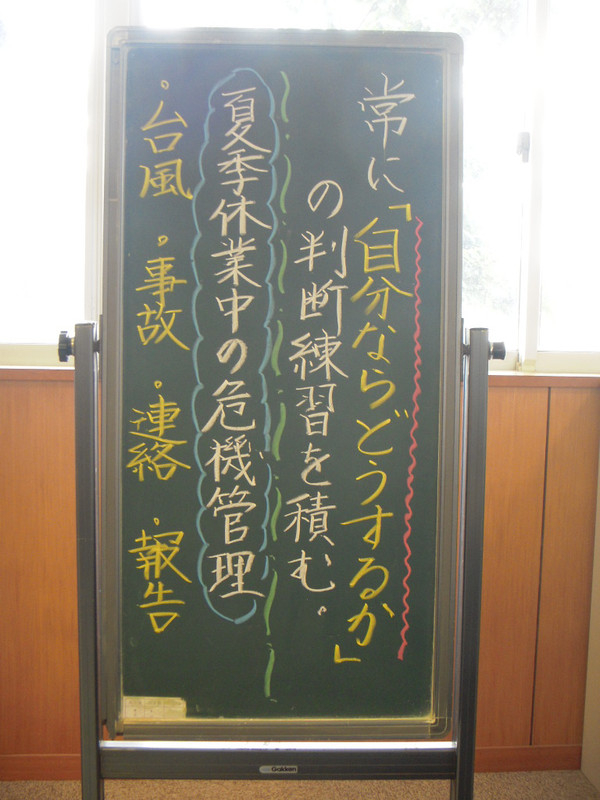 常に「自分ならどうするか」
の判断練習を積む。
夏季休業中の危機管理
・台風 ・事故 ・連絡 ・報告
Gakken